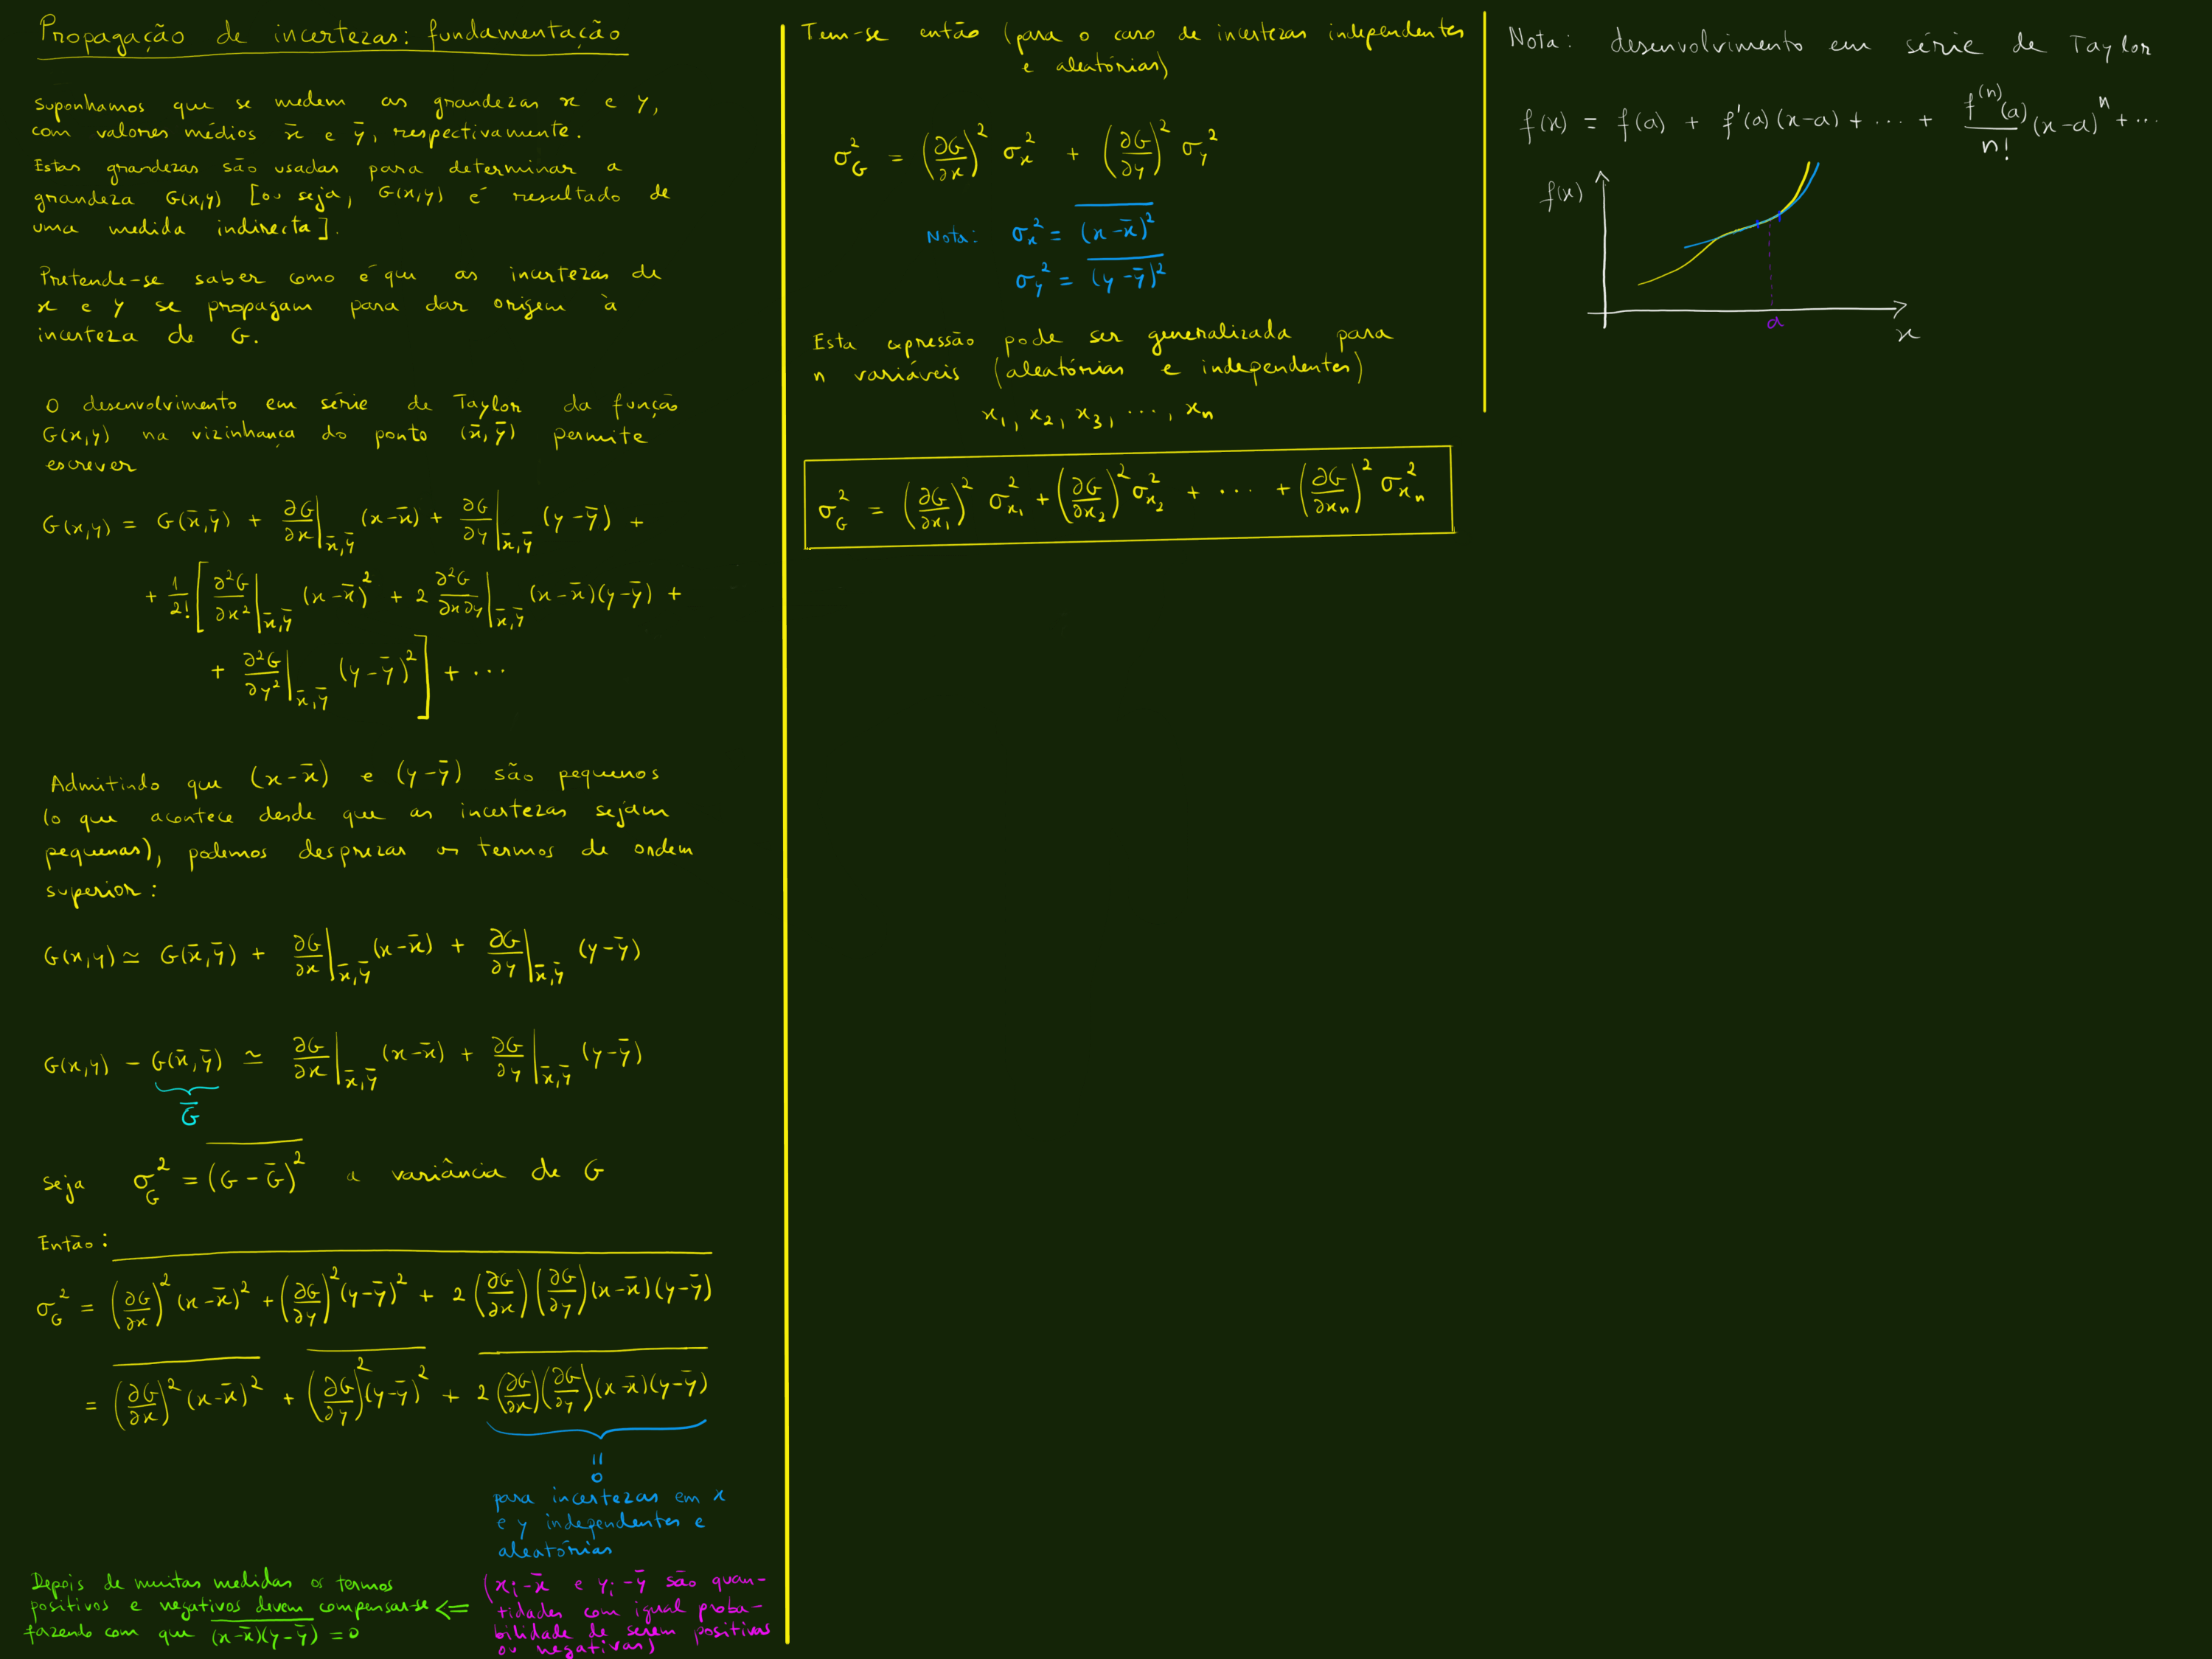 Propagação de incertezas: fundamentação
Suponhamos que se medem as grandezas x e y,
com valores médios x̄ e ȳ, respectivamente.
Estas grandezas são usadas para determinar a
grandeza G(x,y) [ou seja, G(x,y) é resultado de
uma medida indirecta].
Pretende-se saber como é que as incertezas de
x e y se propagam para dar origem à
incerteza de G.
O desenvolvimento em série de Taylor da função
G(x,y) na vizinhança do ponto (x̄,ȳ) permite
escrever
G(x,y) = G(x̄,ȳ) + ∂G/∂x|x̄,ȳ (x-x̄) + ∂G/∂y|x̄,ȳ (y-ȳ) +
+ 1/2! [ ∂²G/∂x²|x̄,ȳ (x-x̄)² + 2 ∂²G/∂x∂y|x̄,ȳ (x-x̄)(y-ȳ) +
+ ∂²G/∂y²|x̄,ȳ (y-ȳ)² ] + ...
Admitindo que (x-x̄) e (y-ȳ) são pequenos
(o que acontece desde que as incertezas sejam
pequenas), podemos desprezar os termos de ordem
superior:
G(x,y) ≃ G(x̄,ȳ) + ∂G/∂x|x̄,ȳ (x-x̄) + ∂G/∂y|x̄,ȳ (y-ȳ)
G(x,y) - G(x̄,ȳ) ≃ ∂G/∂x|x̄,ȳ (x-x̄) + ∂G/∂y|x̄,ȳ (y-ȳ)
Ḡ
seja σ_G² = \overline{(G-Ḡ)²} a variância de G
Então:
σ_G² = \overline{(∂G/∂x)² (x-x̄)² + (∂G/∂y)² (y-ȳ)² + 2 (∂G/∂x)(∂G/∂y)(x-x̄)(y-ȳ)}
= \overline{(∂G/∂x)² (x-x̄)²} + \overline{(∂G/∂y)² (y-ȳ)²} + \overline{2 (∂G/∂x)(∂G/∂y)(x-x̄)(y-ȳ)}
=
0
para incertezas em x
e y independentes e
aleatórias
(xi-x̄ e yi-ȳ são quan-
tidades com igual proba-
bilidade de serem positivas
ou negativas)
<=
Depois de muitas medidas os termos
positivos e negativos devem compensar-se
fazendo com que \overline{(x-x̄)(y-ȳ)} = 0
Tem-se então (para o caso de incertezas independentes
e aleatórias)
σ_G² = (∂G/∂x)² σ_x² + (∂G/∂y)² σ_y²
Nota: σ_x² = \overline{(x-x̄)²}
σ_y² = \overline{(y-ȳ)²}
Esta expressão pode ser generalizada para
n variáveis (aleatórias e independentes)
x₁, x₂, x₃, ..., xₙ
σ_G² = (∂G/∂x₁)² σ_x₁² + (∂G/∂x₂)² σ_x₂² + ... + (∂G/∂xₙ)² σ_xₙ²
Nota: desenvolvimento em série de Taylor
f(x) = f(a) + f'(a)(x-a) + ... + f⁽ⁿ⁾(a)/n! (x-a)ⁿ + ...
f(x)
a
x